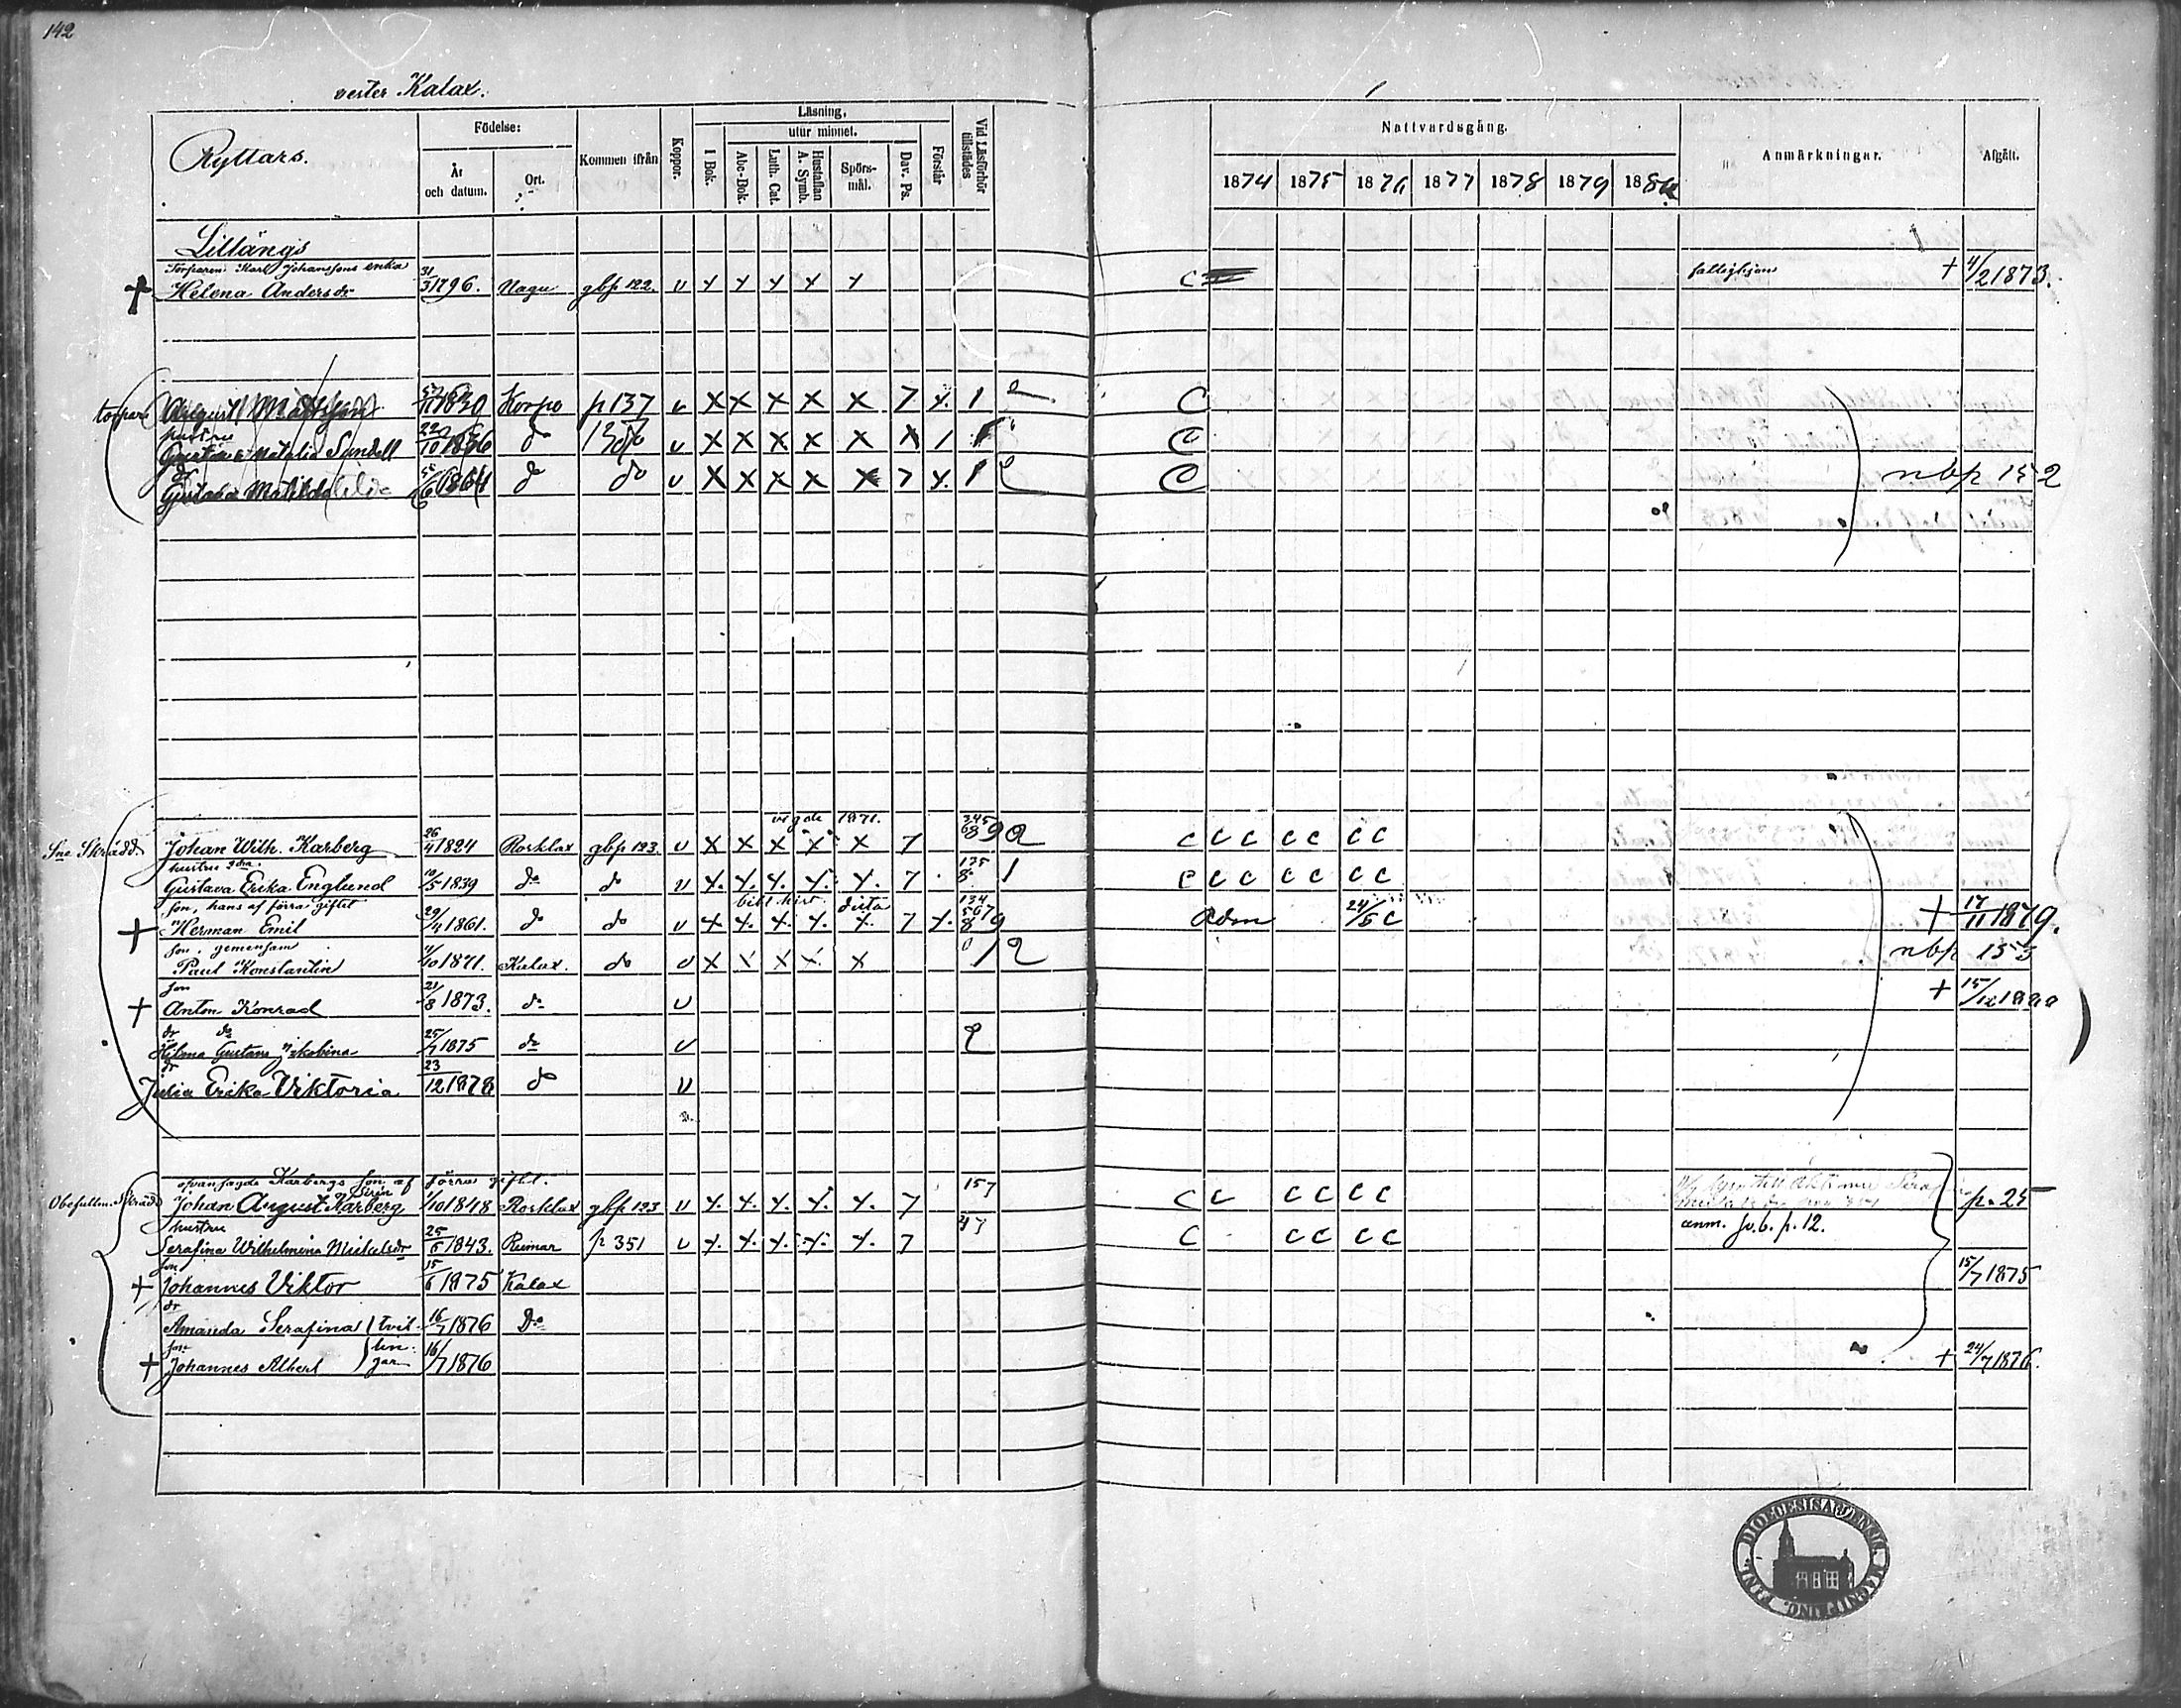 142
vester Kalax.
Ryttars.
Födelse:
År och datum.
Ort.
Kommen ifrån
Koppor.
Läsning,
utur minnet.
I Bok.
Abc-Bok.
Luth. Cat.
Hustaflan A. Symb.
Spörs-mål.
Dav. Ps.
Förstår
Vid Läsförhör tillstädes
Nattvardsgång.
1874 1875 1876 1877 1878 1879 1880
Anmärkningar.
Afgått.
Lillängs
Torparen Karl Johanssons enka
† Helena Andersdr 31/3 1796. Nagu gbp 122. v x x x x x C fattighjon + 4/2 1873.
torpare August Mattsson 1830 Korpo p 137 v x x x x x 7 x. 1 C
hustru
Gustava Natalia Sundell 22/10 1836 do v x x x x x x 1 C
dr
Gustava Matilda 1864 do do v x x x x x 7 x. 1 C nbp 152
vigde 1871.
Sne Skrädd. Johan Wilh. Karberg 26/4 1824 Rosklax gbp 123. v x x x x x 7 C C C C C C C
hustru 2dra.
Gustava Erika Englund 10/5 1839 do do v x. x. x. x. x. 7 1 C C C C C C C
son, hans af förra giftet
† Herman Emil 29/4 1861. do do v x x. x. x. x. 7 x. Adm 24/5 C + 17/11 1879.
son, gemensam
Paul Konstantin 4/10 1871. Kalax. do v x x x x x nbp 153
son
† Anton Konrad 21/8 1873. do v + 15/12 1880
dr do
Hilma Gustava Jakobina 25/7 1875 do v
dr
Julia Erika Viktoria 23/12 1878 do v
ofvansagde Karbergs son af förra giftet. 157
Obesutten Skrädd Johan August Karberg 1/10 1848 Rosklax gbp 123 v x. x. x. x. x. 7 C C C C C C p. 25
hustru
Serafina Wilhelmina Mickelsdr 25/6 1843. Rumar p 351 v x. x. x. x. x. 7 C C C C C anm. sv. b. p. 12.
son
† Johannes Viktor 15/6 1875 Kalax 15/7 1875
dr
Amanda Serafina } tvil- 16/7 1876 Do
son lin-
† Johannes Albert jar 16/7 1876 + 24/7 1876.